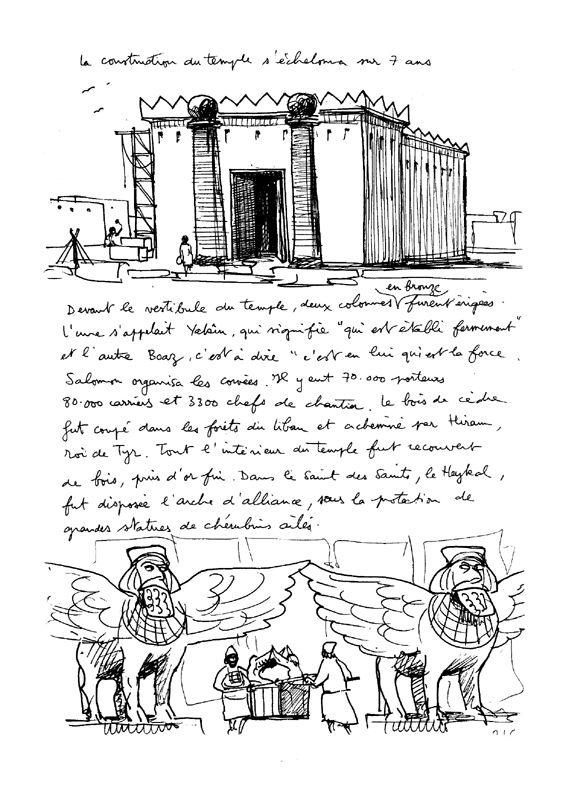 la construction du temple s'échelonna sur 7 ans
en bronze
Devant le vestibule du temple, deux colonnes furent érigées.
L'une s'appelait Yakin, qui signifie "qui est établi fermement"
et l'autre Boaz, c'est à dire "c'est en lui qu'est la force.
Salomon organisa les corvées. Il y eut 70.000 porteurs
80.000 carriers et 3300 chefs de chantier. Le bois de cèdre
fut coupé dans les forêts du Liban et acheminé par Hiram,
roi de Tyr. Tout l'intérieur du temple fut recouvert
de bois, puis d'or fin. Dans le Saint des Saints, le Heykal,
fut disposée l'arche d'alliance, sous la protection de
grandes statues de chérubins ailés.